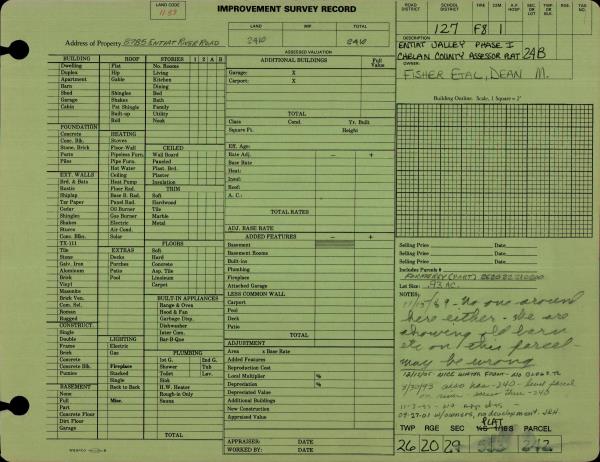 LAND CODE
1153
IMPROVEMENT SURVEY RECORD
LAND IMP. TOTAL
240 240
ASSESSED VALUATION
Address of Property 5785 ENTIAT RIVER ROAD
ROAD DISTRICT SCHOOL DISTRICT FIRE COM. A.F. HOSP SEC. OR LOT TWP. OR BLK. RGE TAX NO.
127 F8 1
DESCRIPTION
ENTIAT VALLEY PHASE I
CHELAN COUNTY ASSESSOR PLAT 24B
OWNER
FISHER ETAL, DEAN M.
Building Outline. Scale, 1 Square = 2'
BUILDING ROOF STORIES 1 2 A B
Dwelling Flat No. Rooms
Duplex Hip Living
Apartment Gable Kitchen
Barn Dining
Shed Shingles Bed
Garage Shakes Bath
Cabin Pat Shingle Family
Built-up Utility
Roll Nook
FOUNDATION
Concrete HEATING
Conc. Blk. Stoves CEILED
Stone, Brick Floor-Wall Wall Board
Posts Pipeless Furn. Paneled
Piles Pipe Furn. Plast. Brd.
Hot Water Ceiling
EXT. WALLS Ceiling Plaster
Brd. & Bats Heat Pump Insulation
Rustic Floor Rad. TRIM
Shiplap Base B. Rad. Soft
Tar Paper Panel Rad. Hardwood
Cedar Oil Burner Tile
Shingles Gas Burner Marble
Shakes Electric Metal
Stucco Air Cond.
Conc. Blks. Solar
TX-111 FLOORS
Tile EXTRAS Soft
Stone Decks Hard
Galv. Iron Porches Concrete
Aluminum Patio Asp. Tile
Brick Pool Linoleum
Vinyl Carpet
Masonite
Brick Ven. BUILT-IN APPLIANCES
Com. Sel. Range & Oven
Roman Hood & Fan
Rugged Garbage Disp.
CONSTRUCT. Dishwasher
Single Inter Com.
Double LIGHTING Bar-B-Que
Frame Electric
Brick Gas PLUMBING
Concrete 1st G. 2nd G.
Concrete Blk. Fireplace Shower Tub
Pumice Stacked Toilet Lav.
Single Sink
BASEMENT Back to Back H.W. Heater
None Rough-in Only
Full Misc. Sauna
Part
Concrete Floor
Dirt Floor
Garage TOTAL
ADDITIONAL BUILDINGS Full Value
Garage: X
Carport: X
TOTAL
Class Cond. Yr. Built
Square Ft. Height
Eff. Age:
Rate Adj. – +
Base Rate
Heat:
Insul:
Roof:
A. C.:
TOTAL RATES
ADJ. BASE RATE
ADDED FEATURES – +
Basement
Basement Rooms
Built-ins
Plumbing
Fireplace
Attached Garage
LESS COMMON WALL
Carport
Pool
Deck
Patio
TOTAL
ADJUSTMENT
Area x Base Rate
Added Features
Reproduction Cost
Local Multiplier %
Depreciation %
Depreciated Value
Additional Buildings
New Construction
Appraised Value
APPRAISER: DATE
WORKED BY: DATE
Selling Price Date
Selling Price Date
Selling Price Date
Includes Parcels #
Lot Size: .93 AC.
NOTES:
No one around
here either - she are
showing old barn
etc on this parcel
may be wrong
09-27-01 w/owners, no development. JRH
PLAT
TWP RGE SEC PARCEL
26 20 29 242